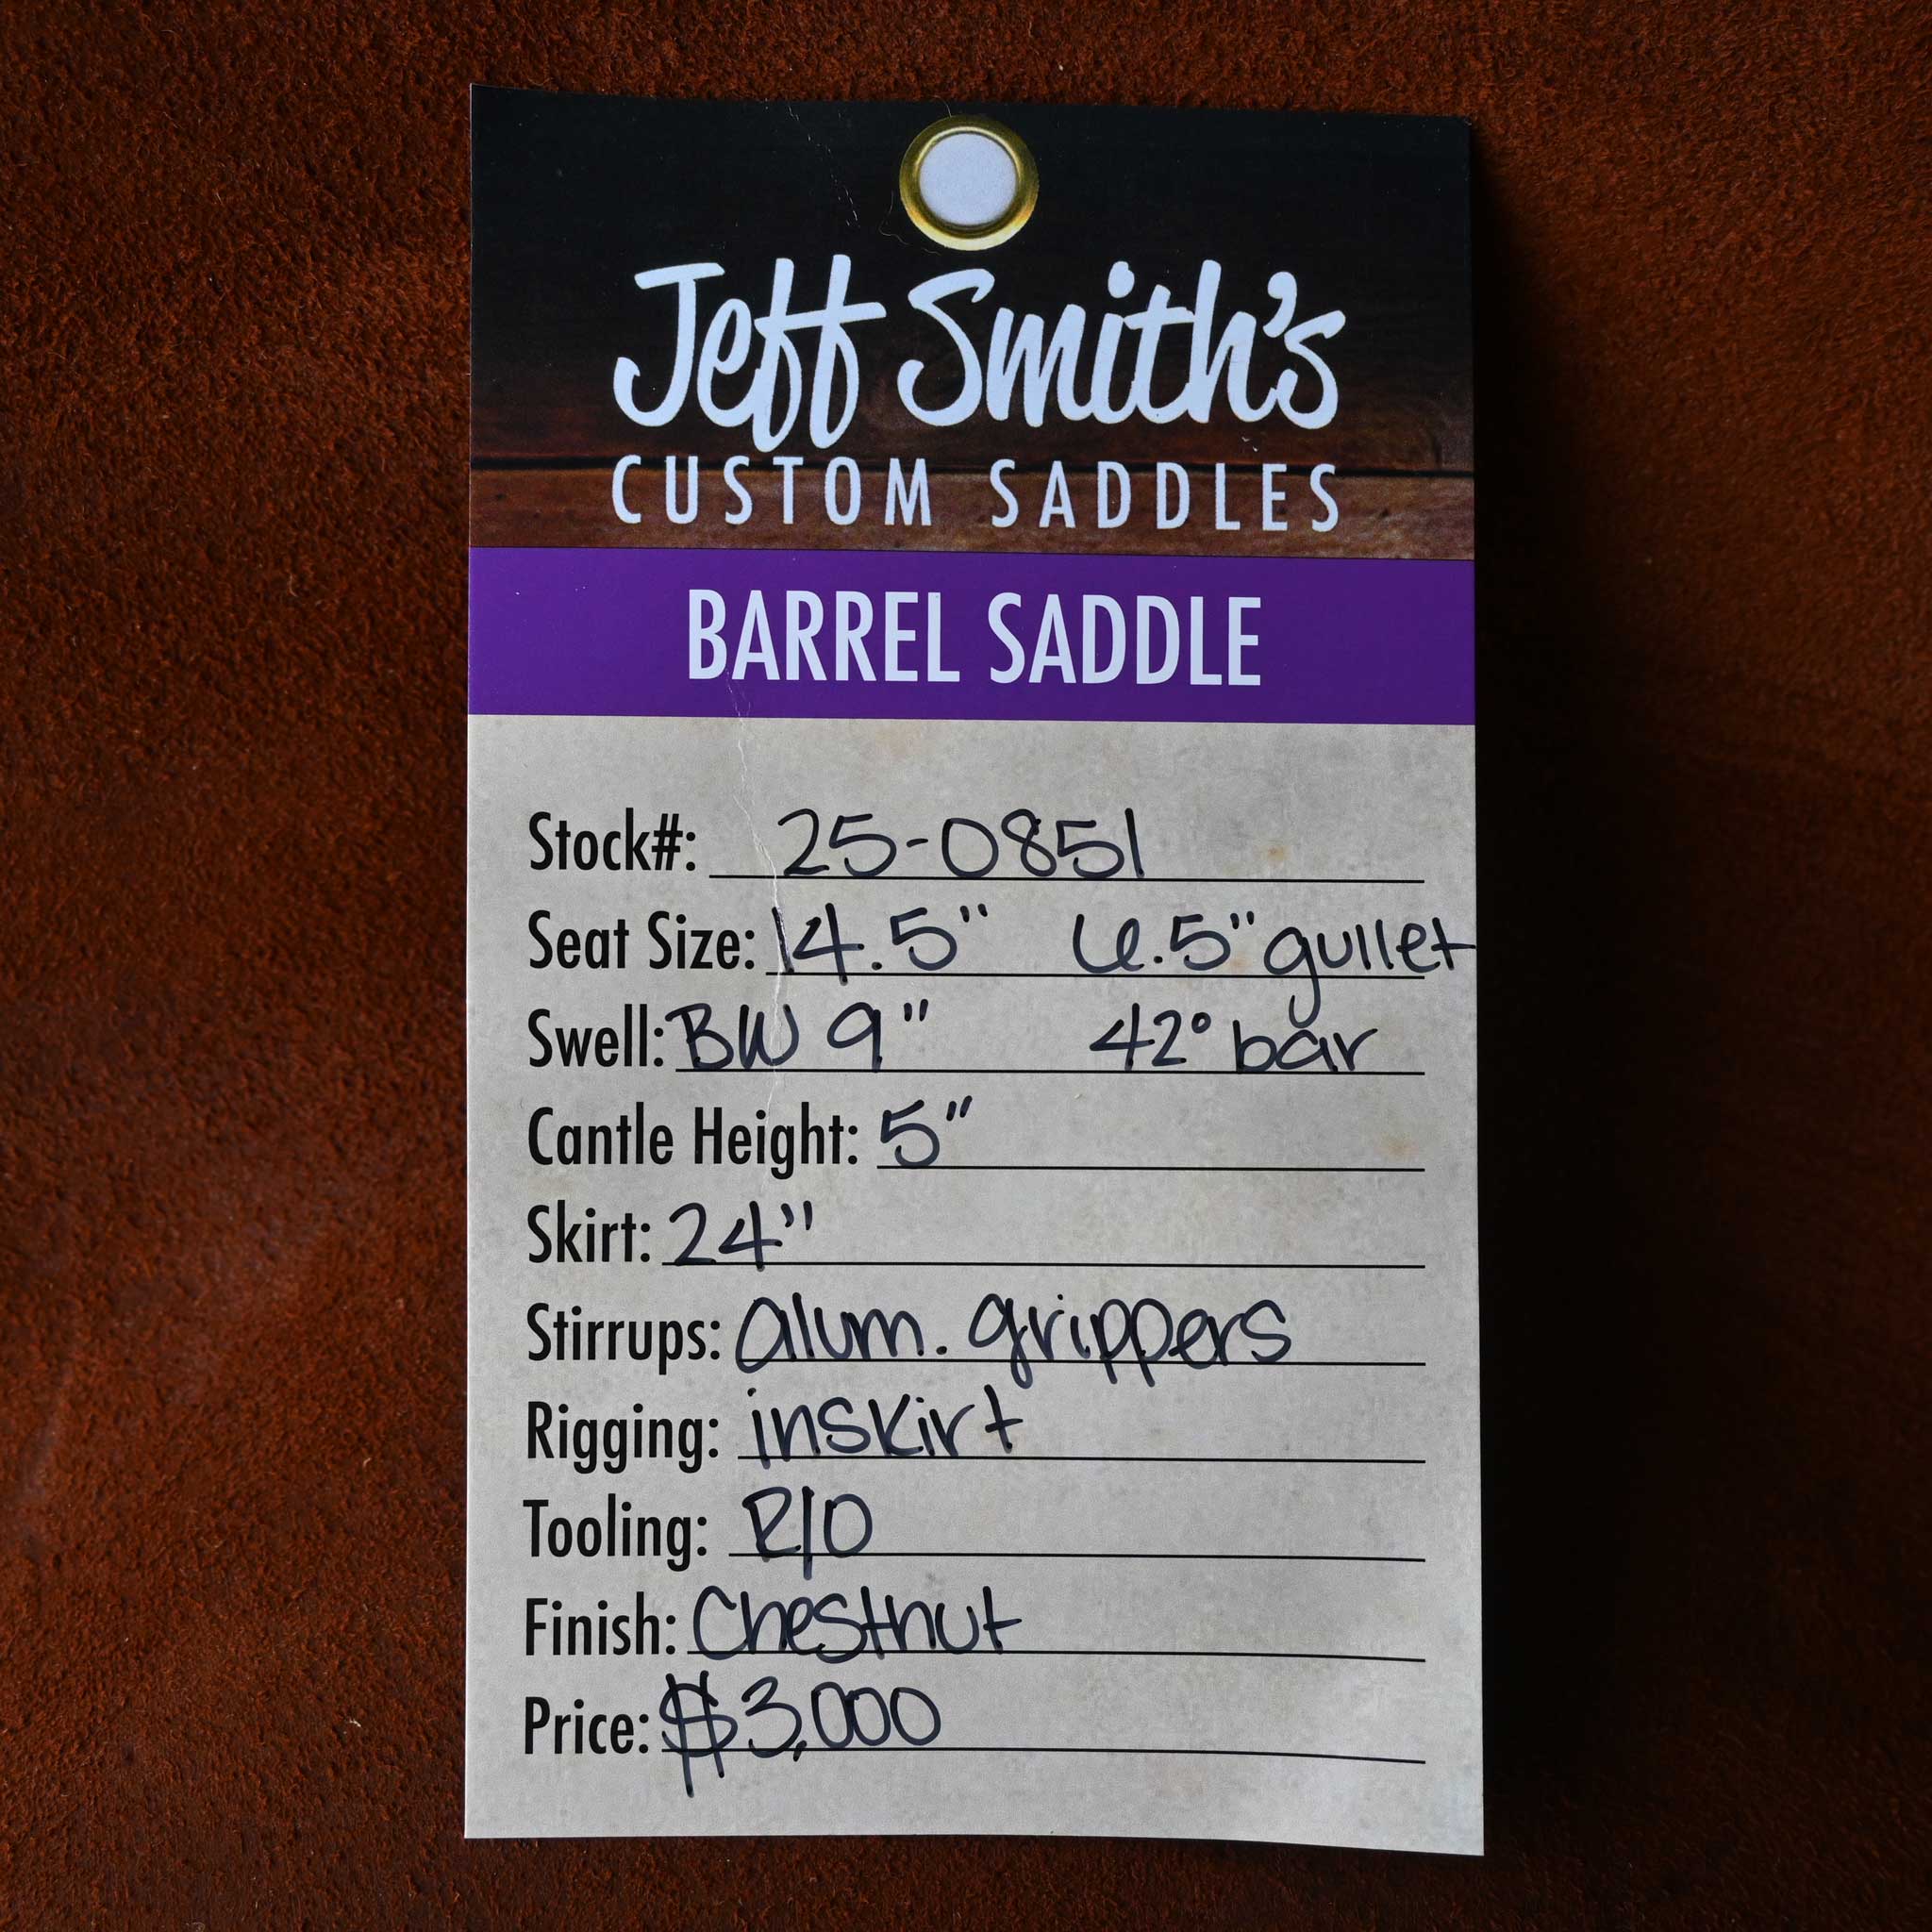 Jeff Smith's
CUSTOM SADDLES
BARREL SADDLE
Stock#: 25-0851
Seat Size: 14.5" 6.5" gullet
Swell: BW 9" 42° bar
Cantle Height: 5"
Skirt: 24"
Stirrups: alum. grippers
Rigging: inskirt
Tooling: R/O
Finish: Chestnut
Price: $3,000